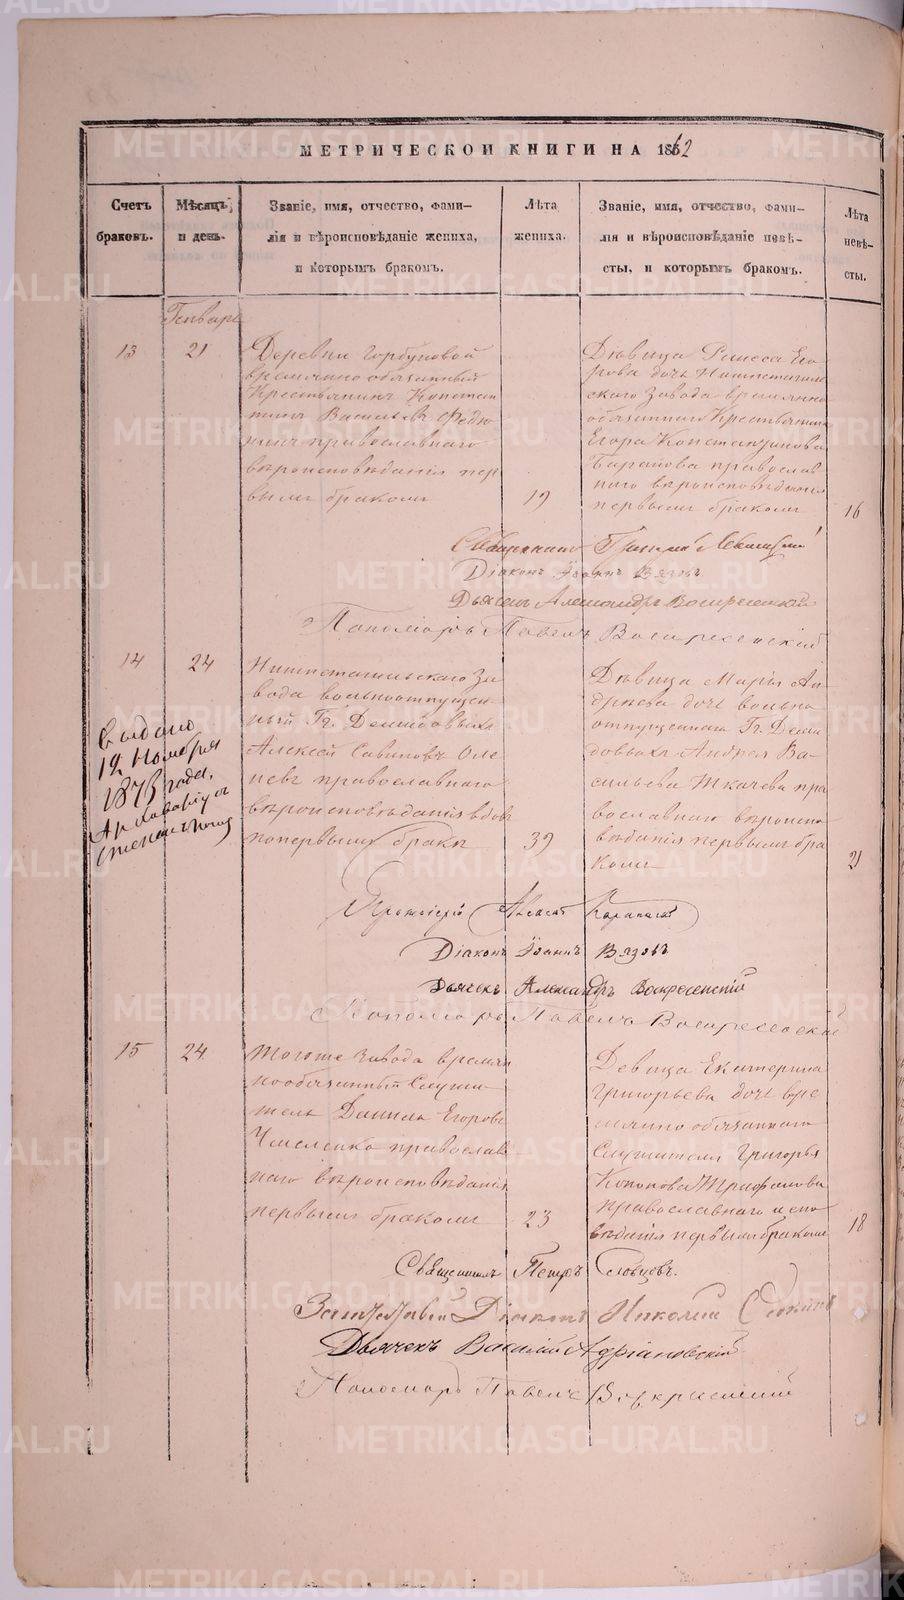 МЕТРИЧЕСКОЙ КНИГИ НА 1862
Счетъ браковъ.
Мѣсяцъ и день.
Званіе, имя, отчество, фами-
лія и вѣроисповѣданіе жениха,
и которымъ бракомъ.
Лѣта жениха.
Званіе, имя, отчество, фами-
лія и вѣроисповѣданіе невѣ-
сты, и которымъ бракомъ.
Лѣта невѣ-
сты.
Генварь
13
21
Деревни Горбуновой
временно обязанный
Крестьянинъ Констан
тинъ Васильевъ Федю
нинъ православнаго
вѣроисповѣданія пер
вымъ бракомъ
19
Дѣвица Раиса Его
рова дочь Нижнетагиль
скаго Завода временно
обязаннаго Крестьянина
Егора Константинова
Баранова православ
наго вѣроисповѣданія
первымъ бракомъ
16
Священникъ
Діаконъ Іоаннъ Вязовъ
Дьячекъ Александръ Воскресенскій
Пономарь Павелъ Воскресенскій
14
24
Нижнетагильскаго За
вода вольноотпущен
ный Гг. Демидовыхъ
Алексей Савиновъ Оле
невъ православнаго
вѣроисповѣданія вдов
по первымъ бракѣ
39
Дѣвица Марія Ан
дреева дочь вольно
отпущеннаго Гг. Деми
довыхъ Андрея Ва-
сильева Ткачева пра
вославнаго вѣроиспо
вѣданія первымъ бра
комъ
21
Выдано
12 Ноября
1875 года,
Архиваріусъ
Протоіерей
Діаконъ Іоаннъ Вязовъ
Дьячекъ Александръ Воскресенскій
Пономарь Павелъ Воскресенскій
15
24
Тогоже Завода времян
нообязанный Служи
тель Данилъ Егоровъ
православ
наго вѣроисповѣданія
первымъ бракомъ
23
Девица Екатерина
Григорьева дочь вре
мянно обязаннаго
Служителя Григорья
Кононова Трифанова
православнаго испо
вѣданія первымъ бракомъ
18
Священникъ Петръ Словцовъ.
Діаконъ Николай
Дьячекъ Василій Адріановскій
Пономарь Павелъ
METRIKI.GASO-URAL.RU